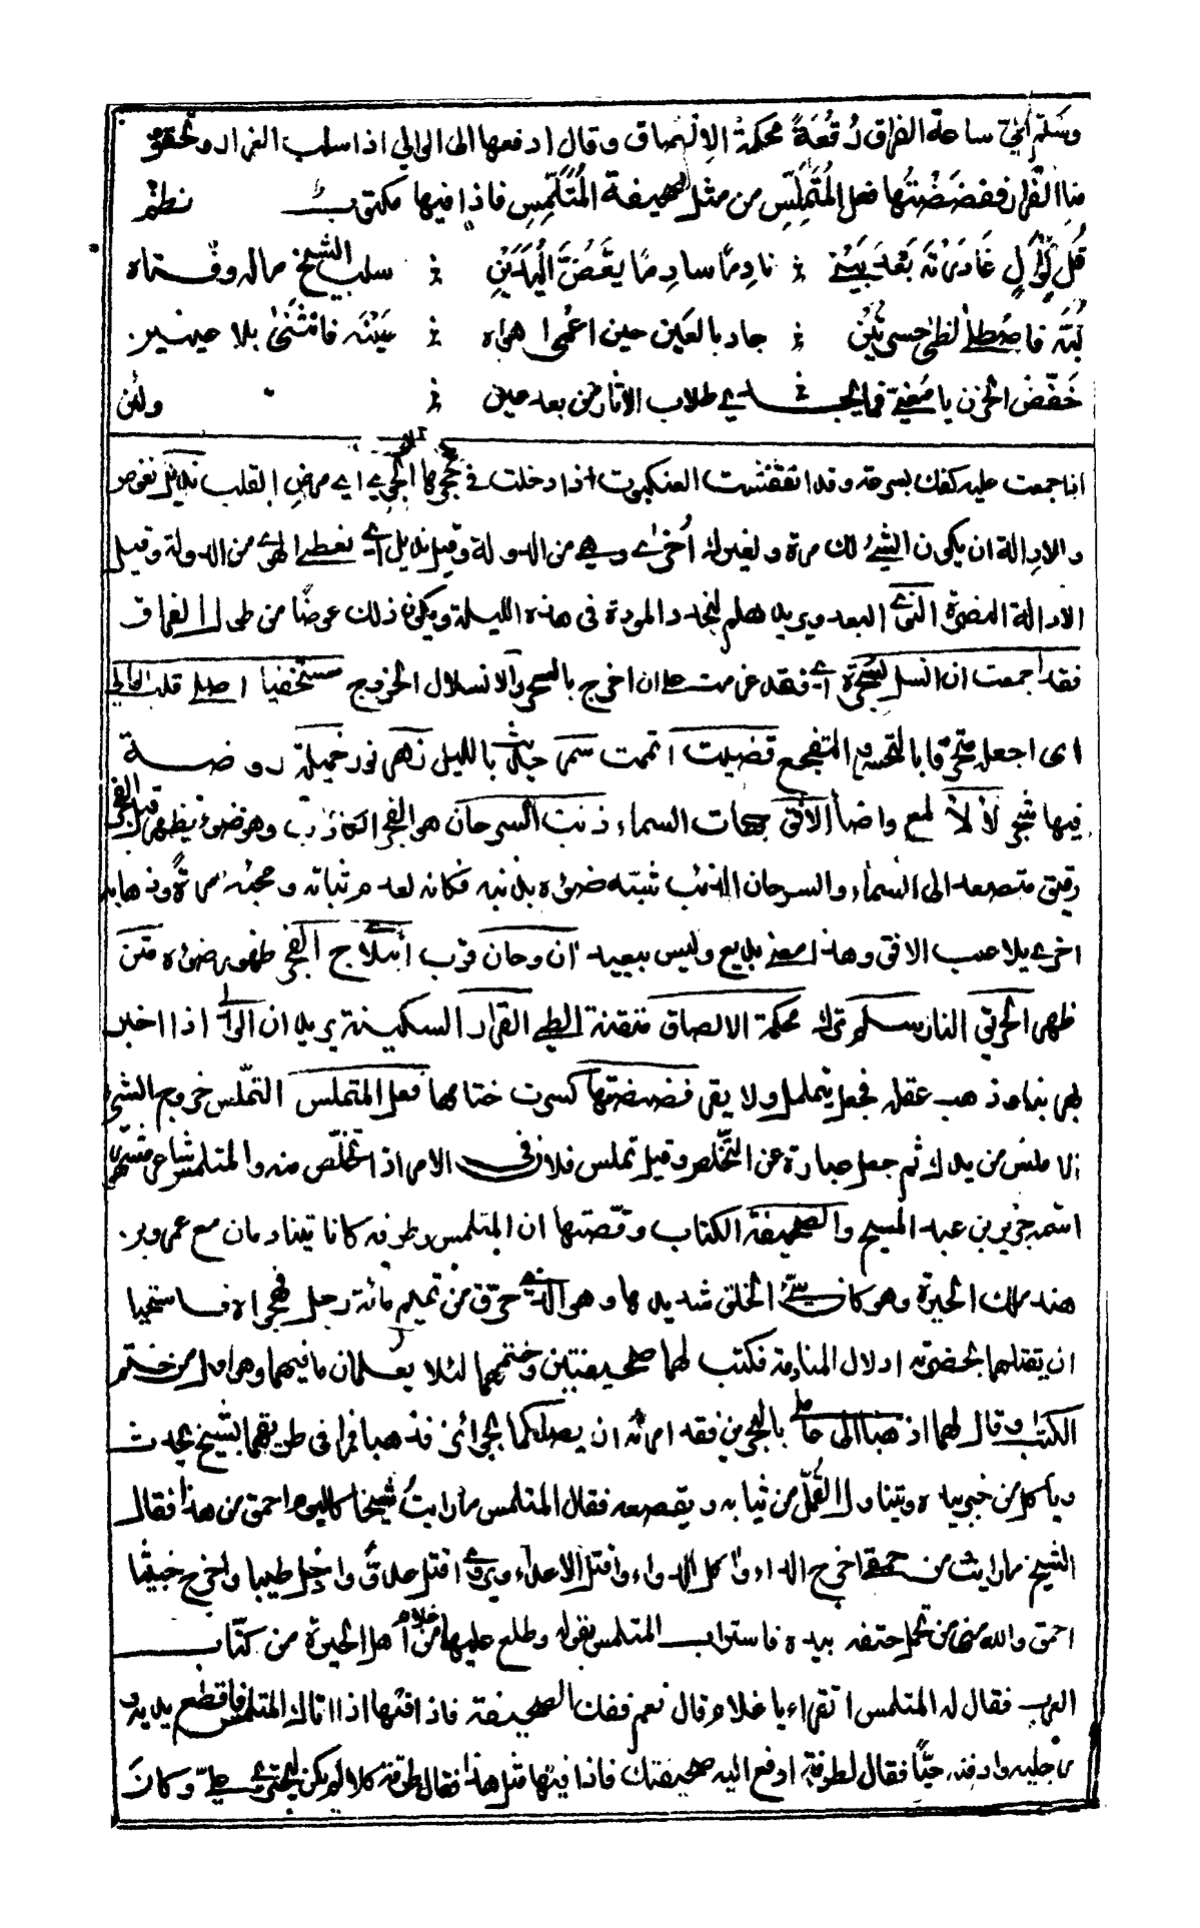 وسلم إليّ ساعة الفراق رُقْعَةً محكمة الإلصاق وقال ادفعها الى الوالي اذا سلب القرار وتحقق
منا الفرار ففضَضْتُها فعل المُتَمَلِّس من مثل صحيفة المُتَلَمِّسِ فاذا فيها مكتوب نظم
قُل لِوَالٍ غَادَرْتُه بَعْدَ بَيْنِي نادِمًا سادِمًا يَعَضُّ اليَدَيْنِ سلب الشيخ ماله وفتاه
لُبَّه فاصْطَلى لظى حسرتَيْن جاد بالعين حين اعمى هواه عَيْنَه فانْثَنى بلا عينين
خَفِّضْ الحزن يا مُعَنّى فما يجدي طلاب الآثار من بعد عين ولئن
اذا جمعت عليه كفك بسرعة وقد انقفشت العنكبوت اذا دخلت في جحرها اي مرض القلب نديل نعوض
والادالة ان يكون الشيء لك مرة ولغيرك أخرى وهي من الدولة وقيل نديل اي نعطي الهوى من الدولة وقيل
الادالة النصرة النوى البعد ويريد هلم لنجدد المودة في هذه الليلة ويكون ذلك عوضًا من طول الفراق
فقد اجمعت ان انسل بسحرة اي فقد عزمت على ان اخرج بالسحر والانسلال الخروج مستخفيا اصلي قلب الوالي
اى اجعله متحرقا بالتحسر والتفجع قضيت اتممت سمر حديث بالليل زهر نور خميلة روضة
فيها شجر لألأ لمع واضأ الأفق جهات السماء ذنب السرحان هو الفجر الكاذب وهو ضوء يظهر قبل الفجر
رقيق متصعد الى السماء والسرحان الذئب شبته ضوءه بذنبه فكانه لعدم ثباته ومجيئه مرة وذهابه
اخرى يلاعب الافق وهذا معنى بديع وليس ببعيد آن وحان قرب انبلاج الفجر ظهور ضوءه متن
ظهر الحريق النار سلم ترك محكمة الالصاق متقنة الطي القرار السكينة يريد ان الوالي اذا اخبر
بفرارنا ذهب عقله فجعل يتململ ولا يقر فضضتها كسرت ختامها فعل المتملس التملّس خروج الشيء
الاملس من يدك ثم جعل عبارة عن التخلّص وقيل تملس فلان في الامر اذا تخلّص منه والمتلمس شاعر مشهور
اسمه جرير بن عبد المسيح والصحيفة الكتاب وقصتها ان المتلمس وطرفه كانا يتنادمان مع عمرو بن
هند ملك الحيرة وهو كان سيّئ الخلق شديدها وهو الذي حرّق من تميم مائة رجل فهجواه فاستحيا
ان يقتلهما بحضرته ادلال المنادمة فكتب لهما صحيفتين وختمهما لئلا يعلمان ما فيهما وهو اول من ختم
الكتاب وقال لهما اذهبا الى عاملي بالبحرين فقد امرته ان يصلكما بجوائز فذهبا فمرا في طريقهما بشيخ يحدث
وياكل من خبز بيده ويتناول القُمّل من ثيابه ويقصعه فقال المتلمس ما رايتُ شيخا كاليوم احمق من هذا فقال
الشيخ ما رايت من حمقي اخرج الداء وآكل الدواء واقتل الاعداء ويروى اقتل عدوّا وادخل طيبا واخرج خبيثا
احمق والله مني من تحمل حتفه بيده فاستراب المتلمس بقوله وطلع عليهما غلام من اهل الحيرة من كتّاب
العرب فقال له المتلمس اتقراء يا غلام قال نعم ففك الصحيفة فاذا فيها اذا اتاك المتلمس فاقطع يديه و
رجليه وادفنه حيّاً فقال لطرفة ادفع اليه صحيفتك فاذا فيها مثل هذا فقال طرفة كلا لم يكن ليجترئ عليّ وكان